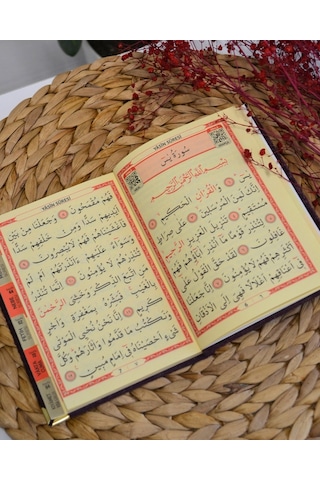 YÂSÎN SÛRESİ
سُورَةُ يٰسٓ
بِسْمِ اللّٰهِ الرَّحْمٰنِ الرَّحِيمِ
يٰسٓ وَالْقُرْاٰنِ الْحَكِيمِ
اِنَّكَ لَمِنَ الْمُرْسَلِينَ عَلٰى صِرَاطٍ
مُسْتَقِيمٍ تَنْزِيلَ الْعَزِيزِ الرَّحِيمِ
لِتُنْذِرَ قَوْمًا مَٓا اُنْذِرَ اٰبَٓاؤُ۬هُمْ فَهُمْ
غَافِلُونَ لَقَدْ حَقَّ الْقَوْلُ عَلٰٓى
اَكْثَرِهِمْ فَهُمْ لَا يُؤْمِنُونَ اِنَّا جَعَلْنَا
فِٓي اَعْنَاقِهِمْ اَغْلَالًا فَهِيَ اِلَى الْاَذْقَانِ
YÂSÎN SÛRESİ
فَهُمْ مُقْمَحُونَ وَجَعَلْنَا مِنْ بَيْنِ
اَيْدِيهِمْ سَدًّا وَمِنْ خَلْفِهِمْ سَدًّا
فَاَغْشَيْنَاهُمْ فَهُمْ لَا يُبْصِرُونَ
وَسَوَٓاءٌ عَلَيْهِمْ ءَاَنْذَرْتَهُمْ اَمْ لَمْ
تُنْذِرْهُمْ لَا يُؤْمِنُونَ اِنَّمَا تُنْذِرُ
مَنِ اتَّبَعَ الذِّكْرَ وَخَشِيَ الرَّحْمٰنَ
بِالْغَيْبِ فَبَشِّرْهُ بِمَغْفِرَةٍ وَاَجْرٍ
كَرِيمٍ اِنَّا نَحْنُ نُحْيِ الْمَوْتٰى
وَنَكْتُبُ مَا قَدَّمُوا وَاٰثَارَهُمْ وَكُلَّ
شَيْءٍ اَحْصَيْنَاهُ فِٓي اِمَامٍ مُبِينٍ